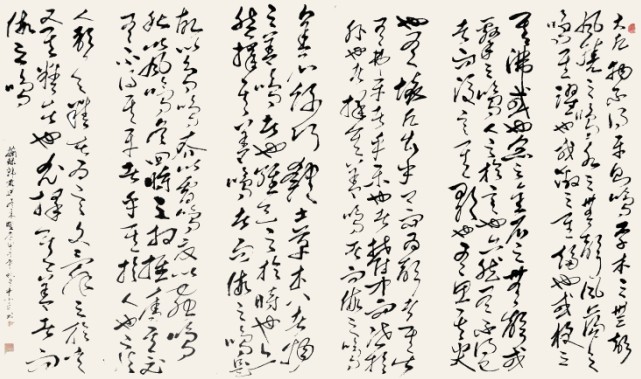 大凡物不得其平則鳴草木之無聲
風撓之鳴水之無聲風蕩之
鳴其躍也或激之其趨也或梗之
其沸也或炙之金石之無聲或
擊之鳴人之於言也亦然有不得已
者而後言其歌也有思其哭
也有懷凡出乎口而為聲者其皆
有弗平者乎樂也者鬱於中而泄於
外者也擇其善鳴者而假之鳴
金石絲竹匏土革木八者物
之善鳴者也維天之於時也亦
然擇其善鳴者而假之鳴是
故以鳥鳴春以雷鳴夏以蟲鳴
秋以風鳴冬四時之相推敓其必
有不得其平者乎其於人也亦然
人聲之精者為言文辭之於言
又其精者也尤擇其善者而
假之鳴